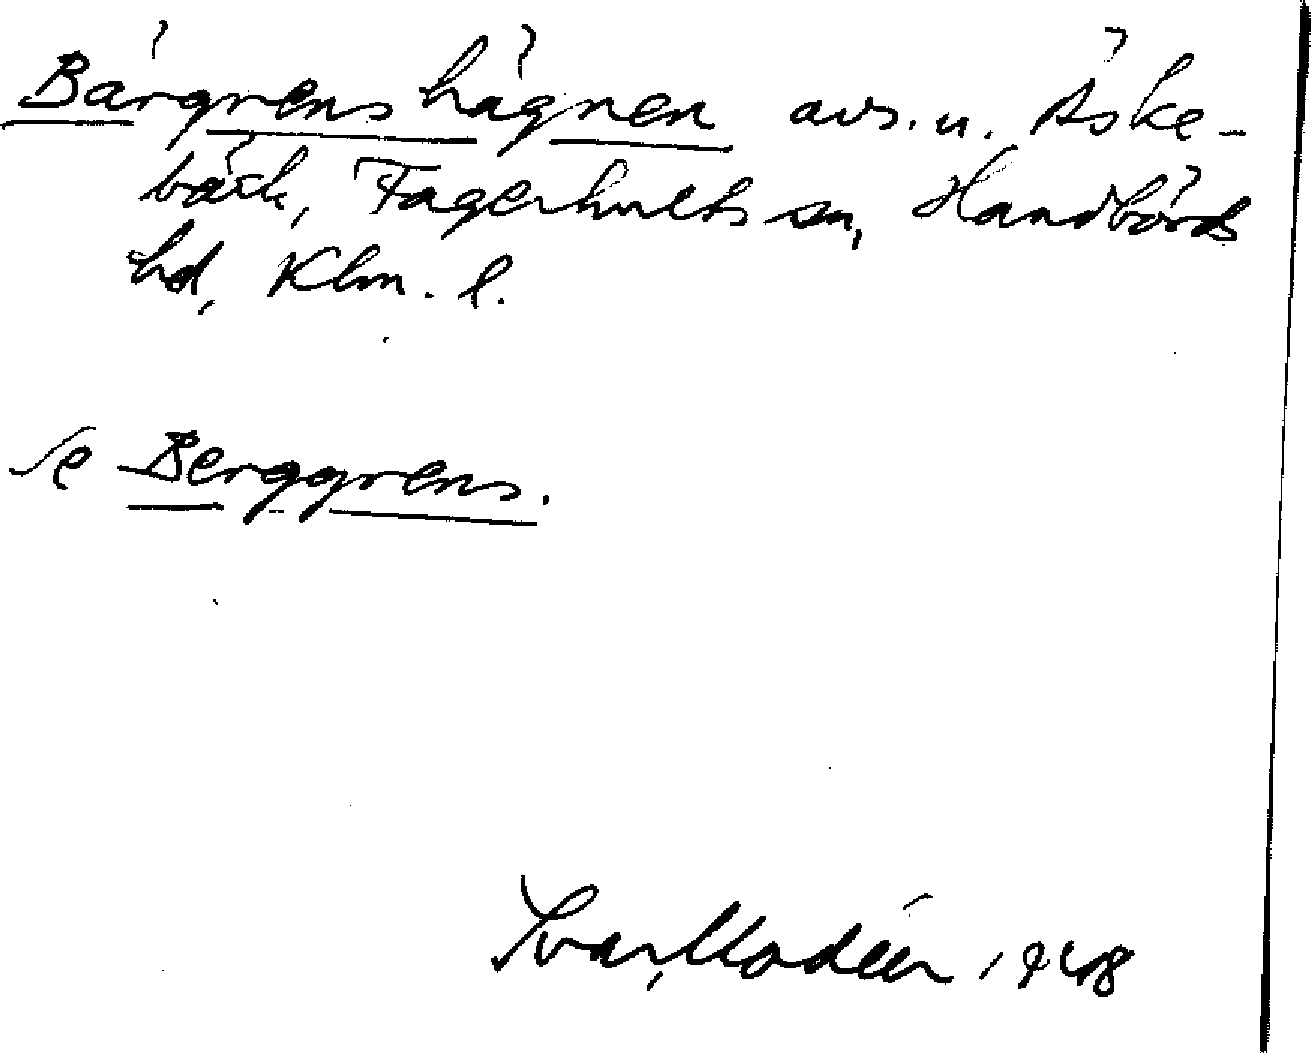 Bärgrens hägnen avs. u. Äske-
bäck, Fagerhults sn, Handbörds
hd, Klm. l.
se Berggrens.
Ivar Modéer 1948